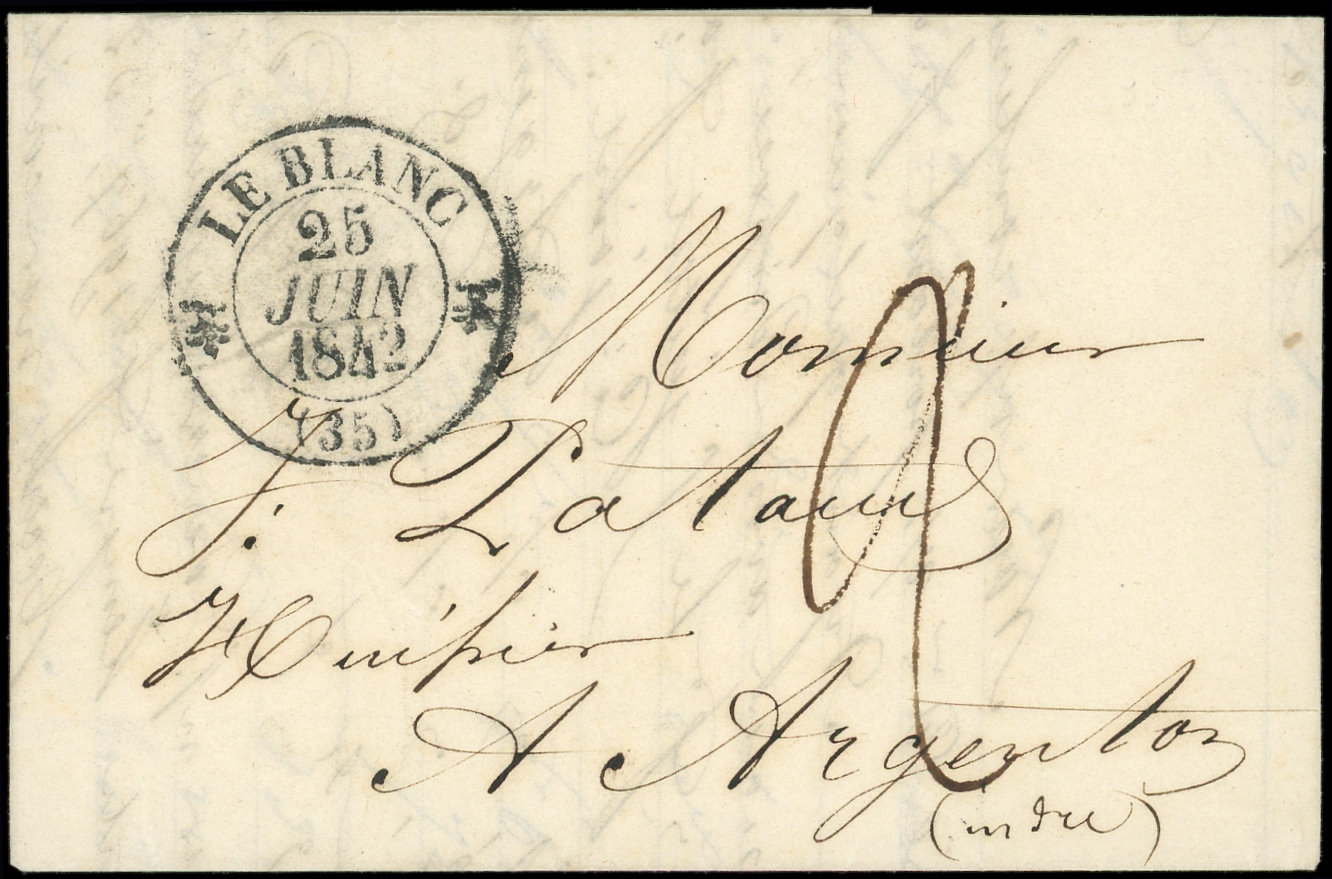 LE BLANC
25
JUIN
1842
(35)
Monsieur
J. Pataud
Huissier
A Argenton
(indre)
2